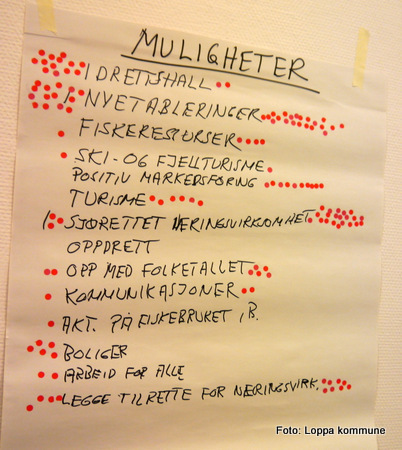 MULIGHETER
IDRETTSHALL
NYETABLERINGER
FISKERESSURSER
SKI-OG FJELLTURISME
POSITIV MARKEDSFØRING
TURISME
SJØRETTET NÆRINGSVIRKSOMHET
OPPDRETT
OPP MED FOLKETALLET
KOMMUNIKASJONER
AKT. PÅ FISKEBRUKET I B.
BOLIGER
ARBEID FOR ALLE
LEGGE TILRETTE FOR NÆRINGSVIRK.
Foto: Loppa kommune